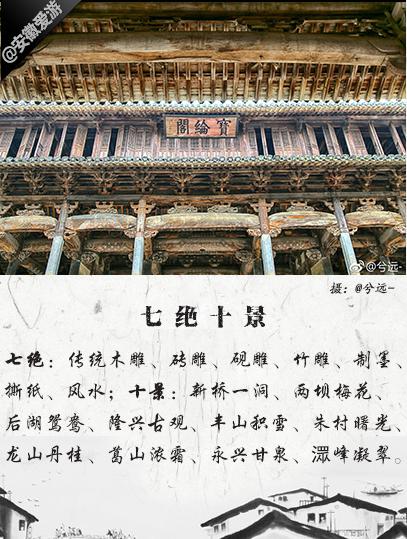 @安徽爱游
寶綸閣
@兮远-
摄：@兮远-
七绝十景
七绝：传统木雕、砖雕、砚雕、竹雕、制墨、
撕纸、风水；十景：新桥一洞、两坝梅花、
后湖鸳鸯、隆兴古观、丰山积雪、朱村曙光、
龙山丹桂、葛山浓霜、永兴甘泉、峰凝翠。